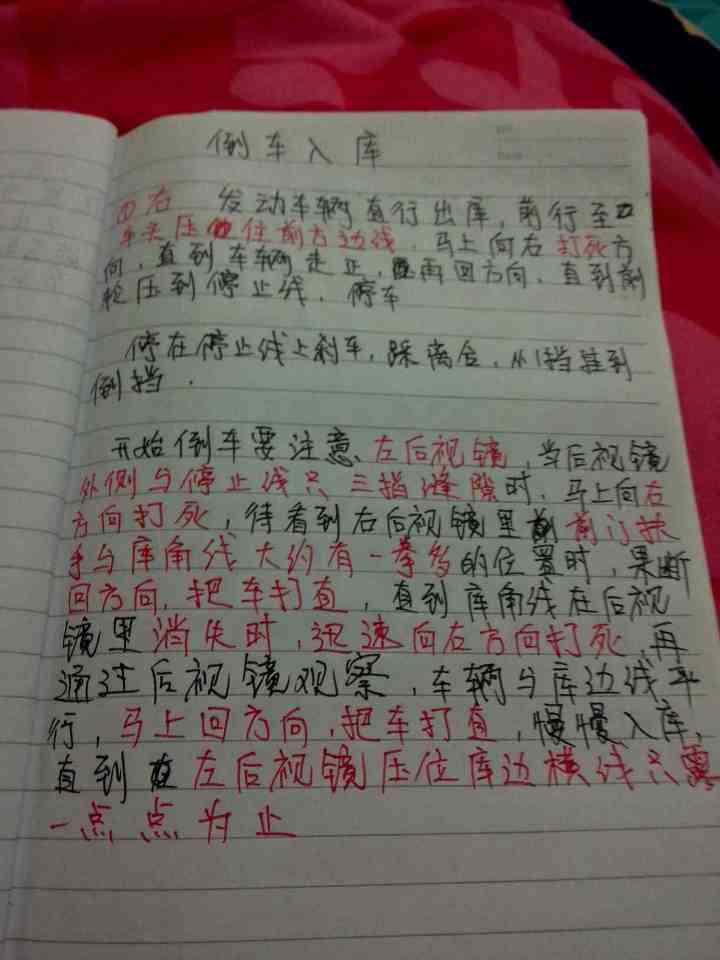 倒车入库
①右 发动车辆直行出库,前行至
车头压住前方边线,马上向右打死方
向,直到车辆走正,再回方向,直到前
轮压到停止线,停车
停在停止线上刹车,踩离合,从1挡挂到
倒挡.
开始倒车要注意,左后视镜,当后视镜
外侧与停止线只三指缝隙时,马上向右
方向打死,待看到右后视镜里前门扶
手与库角线大约有一拳多的位置时,果断
回方向,把车打直,直到库角线在后视
镜里消失时,迅速向右方向打死,再
通过后视镜观察,车辆与库边线平
行,马上回方向,把车打直,慢慢入库,
直到在左后视镜压位库边横线只露
一点点为止